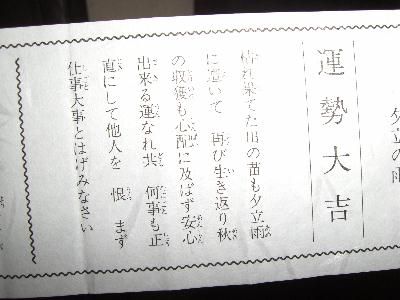 夕立の雨
運勢大吉
枯れ果てた田の苗も夕立雨
に逢いて 再び生き返り秋
の収穫も心配に及ばず安心
出来る運なれ共 何事も正
直にして他人を 恨 まず
仕事大事とはげみなさい